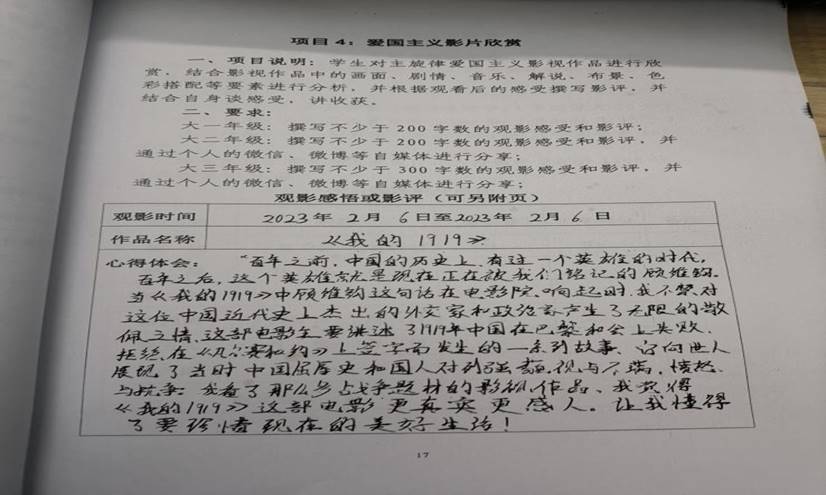 项目 4：爱国主义影片欣赏
一、项目说明：学生对主旋律爱国主义影视作品进行欣
赏，结合影视作品中的画面、剧情、音乐、解说、布景、色
彩搭配等要素进行分析，并根据观看后的感受撰写影评，并
结合自身谈感受，讲收获。
二、要求：
大一年级：撰写不少于 200 字数的观影感受和影评；
大二年级：撰写不少于 200 字数的观影感受和影评，并
通过个人的微信、微博等自媒体进行分享；
大三年级：撰写不少于 300 字数的观影感受和影评，并
通过个人的微信、微博等自媒体进行分享；
观影感悟或影评（可另附页）
观影时间 2023年 2月 6日至2023年 2月 6日
作品名称 《我的 1919》
心得体会： "百年之前，中国的历史上，有过一个英雄的时代，
百年之后，这个英雄就是现在正在被我们铭记的顾维钧。
当《我的1919》中顾维钧这句话在电影院响起时，我不禁对
这位中国近代史上杰出的外交家和政治家产生了无限的敬
佩之情，这部电影主要讲述了1919年中国在巴黎和会上失败，
拒绝在《凡尔赛和约》上签字而发生的一系列故事，它向世人
展现了当时中国屈辱史和国人对列强藐视与不满，愤怒
与抗争，我看了那么多战争题材的影视作品，我觉得
《我的1919》这部电影更真实更感人。让我懂得
了要珍惜现在的美好生活！
17